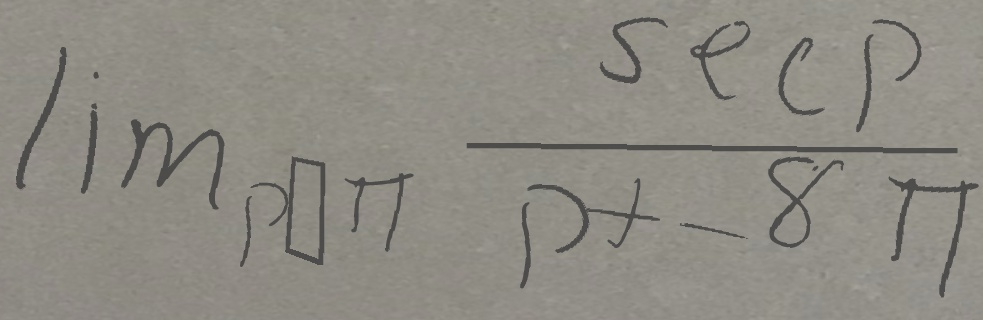 lim p▯π sec p / p + -8 π